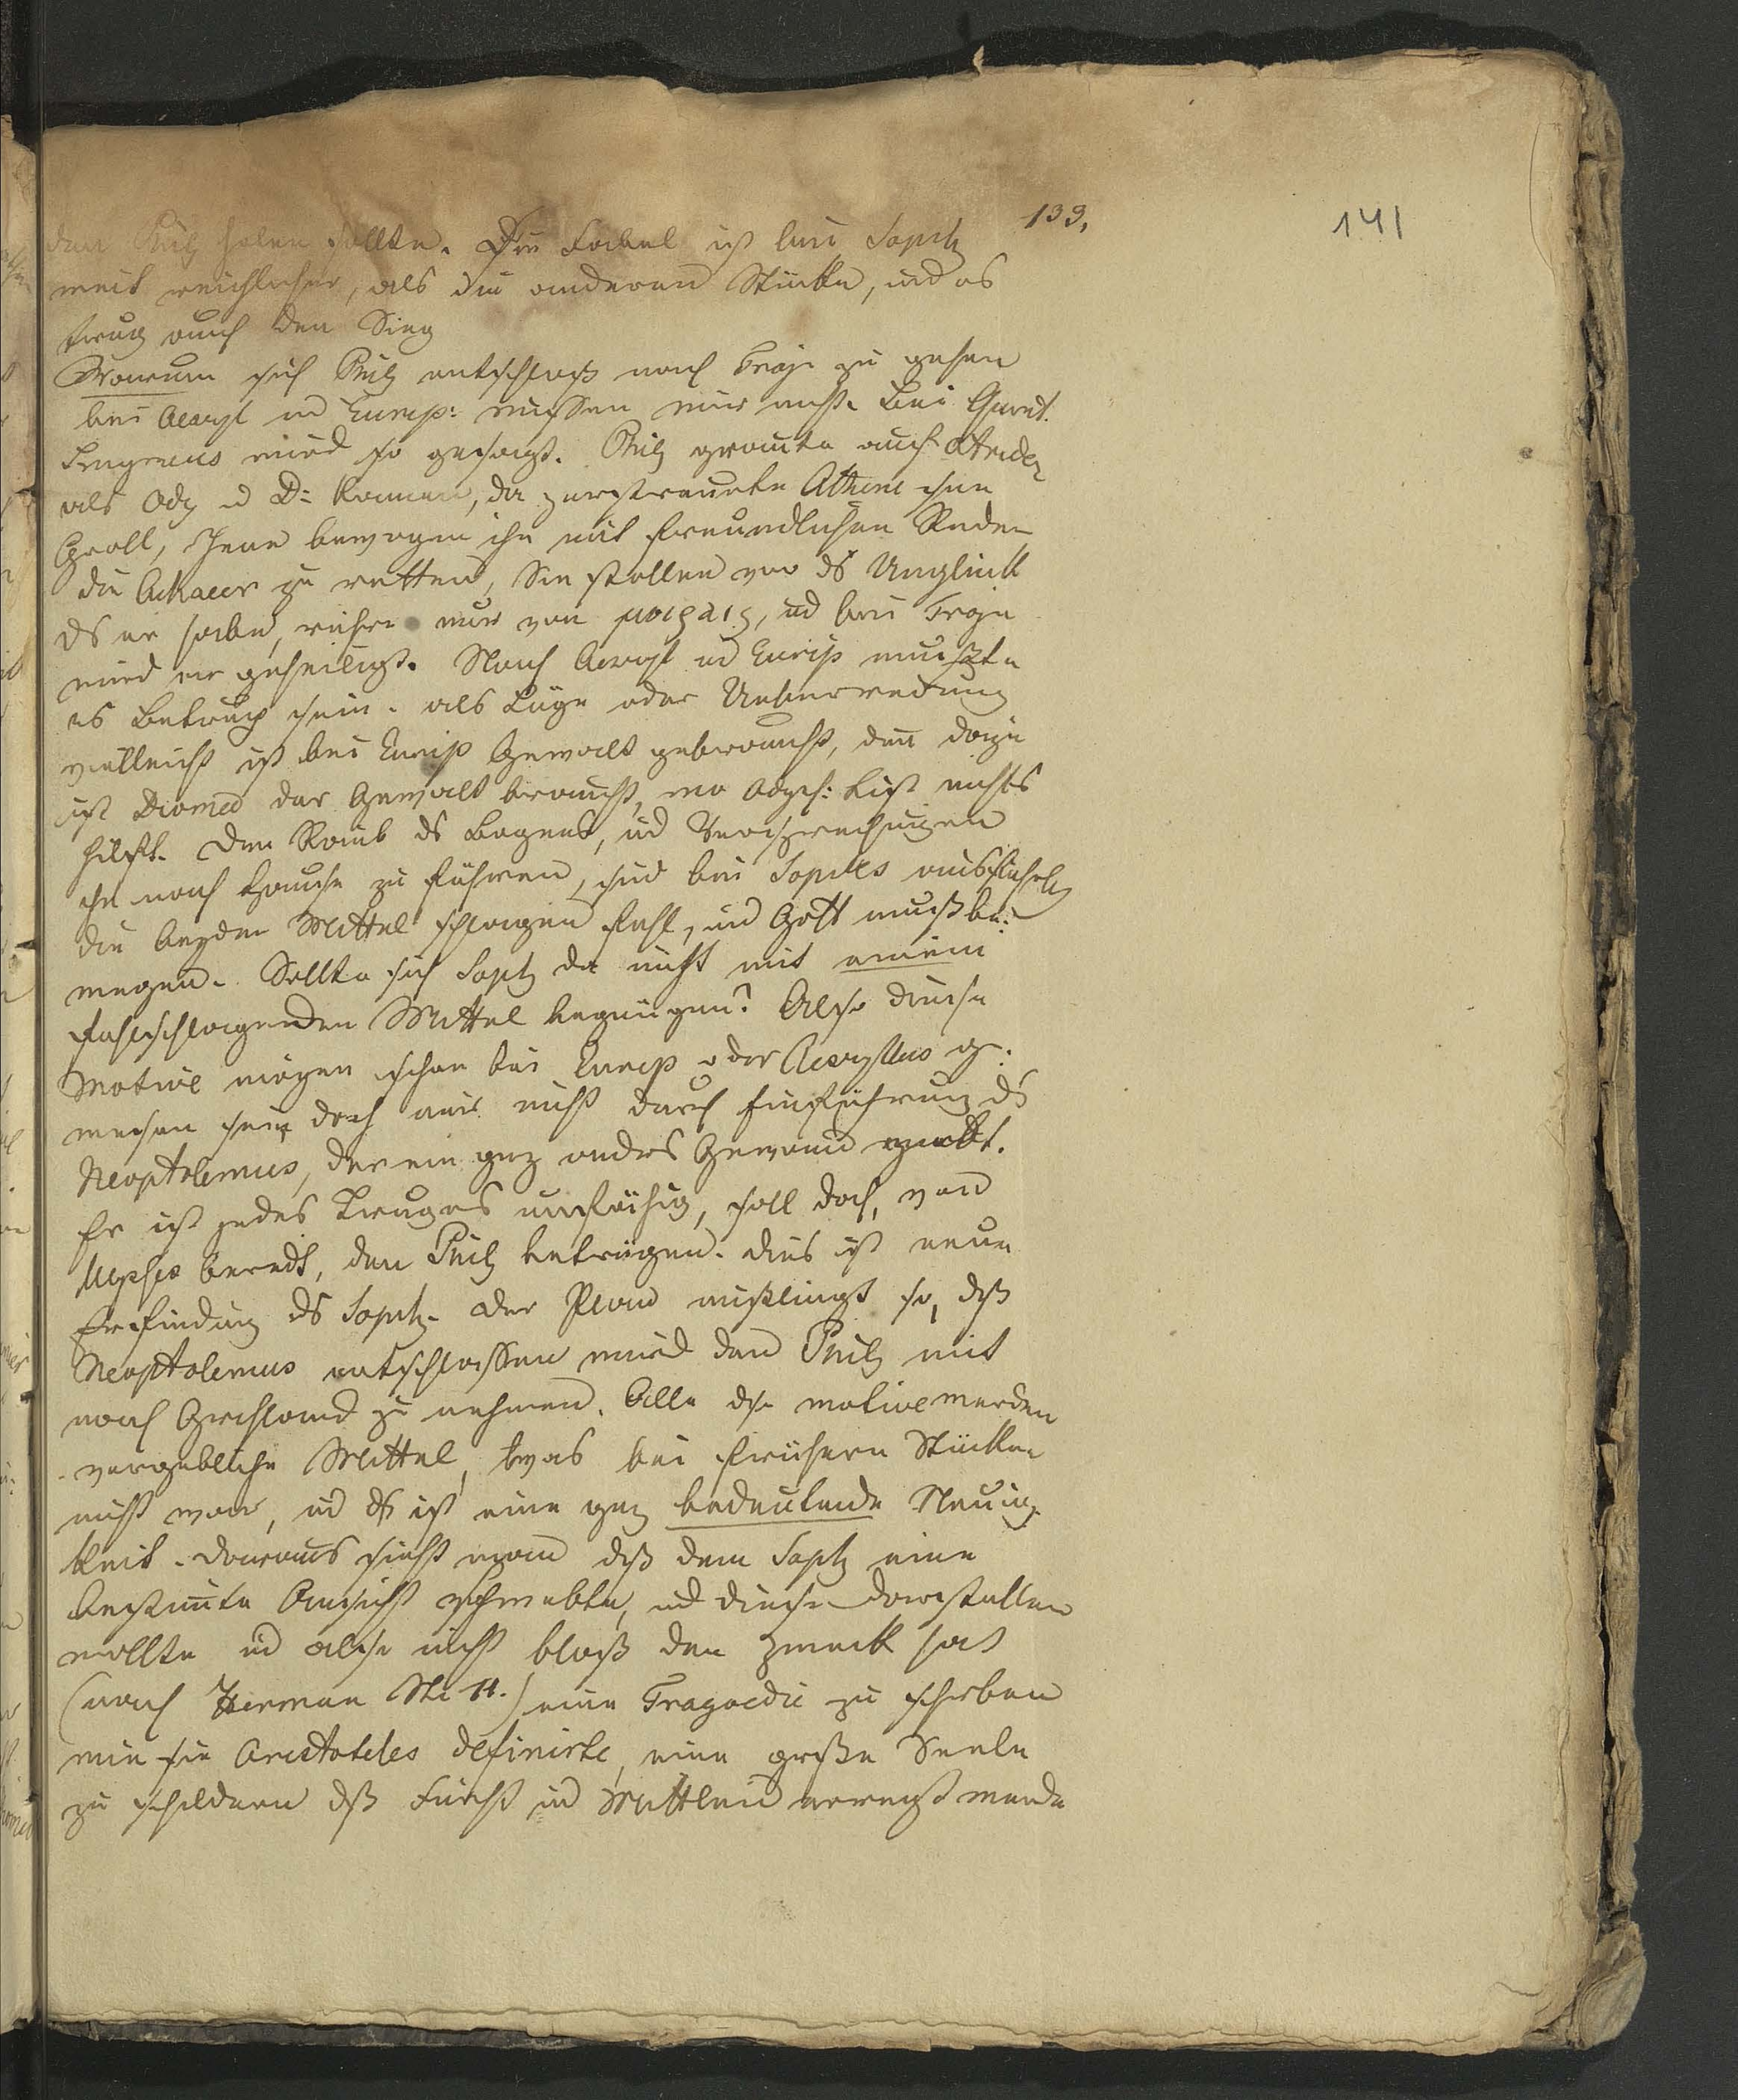 139.
141
den Philz holen sollte. Die Fabel ist bei Sophz
weit reichlicher, als die anderen Stücke, und es
trug auch den Sieg
Warum sich Philz entschloß nach Troja zu gehen
bei Aeschyl und Eurip: wissen wir nicht. Bei Quint.
Smyrnaeus wird so gesagt. Philz grollte auch Atriden
als Odz u D: kamen, da zerstreuete Athene ihm
Groll, Jene bewogen ihn mit freundlichen Reden
die Achaeer zu retten, Sie stellen vor ds Unglück
ds er habe, rühre nur von μοιραις, und bei Troja
wird er geheiligt. Nach Aeschyl und Eurip mußte
es Betrug sein. als Lüge oder Ueberredung
vielleicht ist bei Eurip Gewalt gebraucht, denn dazu
ist Diomed der Gewalt braucht, wo Odyss: List nichts
hilft. Den Raub ds Bogens, und Versprechungen
ihn nach Hause zu führen, sind bei Sophles
die beyden Mittel schlagen fehl, und Gott muß be:
wegen. Sollte sich Sophz da nicht mit einem
fehlschlagenden Mittel begnügen? Also diese
Motive mögen schon bei Eurip oder Aeschyllus ge:
wesen sein doch nicht durch Einführung ds
Neoptolemus, der ein gnz andres Gewand
Er ist jedes Truges unfähig, soll doch, von
Ulysses beredt, den Philz betrügen. dies ist neue
Erfindung ds Sophz. der Plan mißlingt so, dß
Neoptolemus entschlossen wird den Philz mit
nach Grichland zu nehmen. Alle dse motive werden
vergebliche Mittel, was bei frühern Stücken
nicht war, und ds ist eine gnz bedeutende Neuig
keit. daraus sieht man dß dem Sophz eine
bestimte Ansicht vschwebte, und diese darstellen
wollte und also nicht bloß den Zweck hat
(nach Herman) eine Tragoedie zu schrben
wie sie Aristoteles definirte, eine große Seele
zu schildern dß Furcht und Mittleid erregt werde